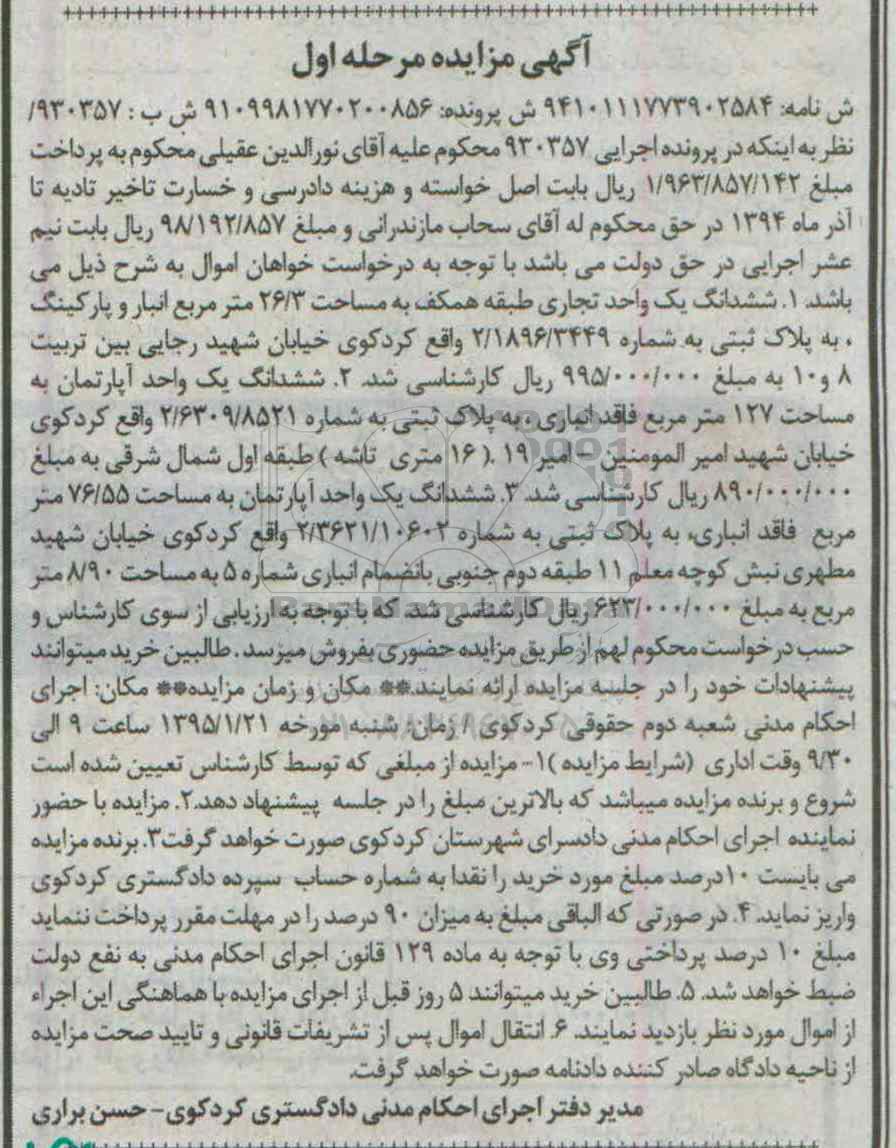 آگهی مزایده مرحله اول
ش نامه: ۹۴۱۰۱۱۱۷۷۳۹۰۲۵۸۴ ش پرونده: ۹۱۰۹۹۸۱۷۷۰۲۰۰۸۵۶ ش ب : ۹۳۰۳۵۷/
نظر به اینکه در پرونده اجرایی ۹۳۰۳۵۷ محکوم علیه آقای نورالدین عقیلی محکوم به پرداخت
مبلغ ۱/۹۶۳/۸۵۷/۱۴۲ ریال بابت اصل خواسته و هزینه دادرسی و خسارت تاخیر تادیه تا
آذر ماه ۱۳۹۴ در حق محکوم له آقای سحاب مازندرانی و مبلغ ۹۸/۱۹۲/۸۵۷ ریال بابت نیم
عشر اجرایی در حق دولت می باشد با توجه به درخواست خواهان اموال به شرح ذیل می
باشد. ۱. ششدانگ یک واحد تجاری طبقه همکف به مساحت ۲۶/۳ متر مربع انبار و پارکینگ
، به پلاک ثبتی به شماره ۲/۱۸۹۶/۳۴۴۹ واقع کردکوی خیابان شهید رجایی بین تربیت
۸ و۱۰ به مبلغ ۹۹۵/۰۰۰/۰۰۰ ریال کارشناسی شد. ۲. ششدانگ یک واحد آپارتمان به
مساحت ۱۲۷ متر مربع فاقد انباری ، به پلاک ثبتی به شماره ۲/۶۳۰۹/۸۵۲۱ واقع کردکوی
خیابان شهید امیر المومنین - امیر ۱۹ .( ۱۶ متری تاشه ) طبقه اول شمال شرقی به مبلغ
۸۹۰/۰۰۰/۰۰۰ ریال کارشناسی شد. ۳. ششدانگ یک واحد آپارتمان به مساحت ۷۶/۵۵ متر
مربع فاقد انباری، به پلاک ثبتی به شماره ۲/۳۶۲۱/۱۰۶۰۲ واقع کردکوی خیابان شهید
مطهری نبش کوچه معلم ۱۱ طبقه دوم جنوبی بانضمام انباری شماره ۵ به مساحت ۸/۹۰ متر
مربع به مبلغ ۶۲۳/۰۰۰/۰۰۰ ریال کارشناسی شد. که با توجه به ارزیابی از سوی کارشناس و
حسب درخواست محکوم لهم از طریق مزایده حضوری بفروش میرسد . طالبین خرید میتوانند
پیشنهادات خود را در جلسه مزایده ارائه نمایند.** مکان و زمان مزایده** مکان: اجرای
احکام مدنی شعبه دوم حقوقی کردکوی / زمان: شنبه مورخه ۱۳۹۵/۱/۲۱ ساعت ۹ الی
۹/۳۰ وقت اداری (شرایط مزایده )۱- مزایده از مبلغی که توسط کارشناس تعیین شده است
شروع و برنده مزایده میباشد که بالاترین مبلغ را در جلسه پیشنهاد دهد.۲. مزایده با حضور
نماینده اجرای احکام مدنی دادسرای شهرستان کردکوی صورت خواهد گرفت۳. برنده مزایده
می بایست ۱۰درصد مبلغ مورد خرید را نقدا به شماره حساب سپرده دادگستری کردکوی
واریز نماید. ۴. در صورتی که الباقی مبلغ به میزان ۹۰ درصد را در مهلت مقرر پرداخت ننماید
مبلغ ۱۰ درصد پرداختی وی با توجه به ماده ۱۲۹ قانون اجرای احکام مدنی به نفع دولت
ضبط خواهد شد. ۵. طالبین خرید میتوانند ۵ روز قبل از اجرای مزایده با هماهنگی این اجراء
از اموال مورد نظر بازدید نمایند. ۶. انتقال اموال پس از تشریفات قانونی و تایید صحت مزایده
از ناحیه دادگاه صادر کننده دادنامه صورت خواهد گرفت.
مدیر دفتر اجرای احکام مدنی دادگستری کردکوی- حسن براری